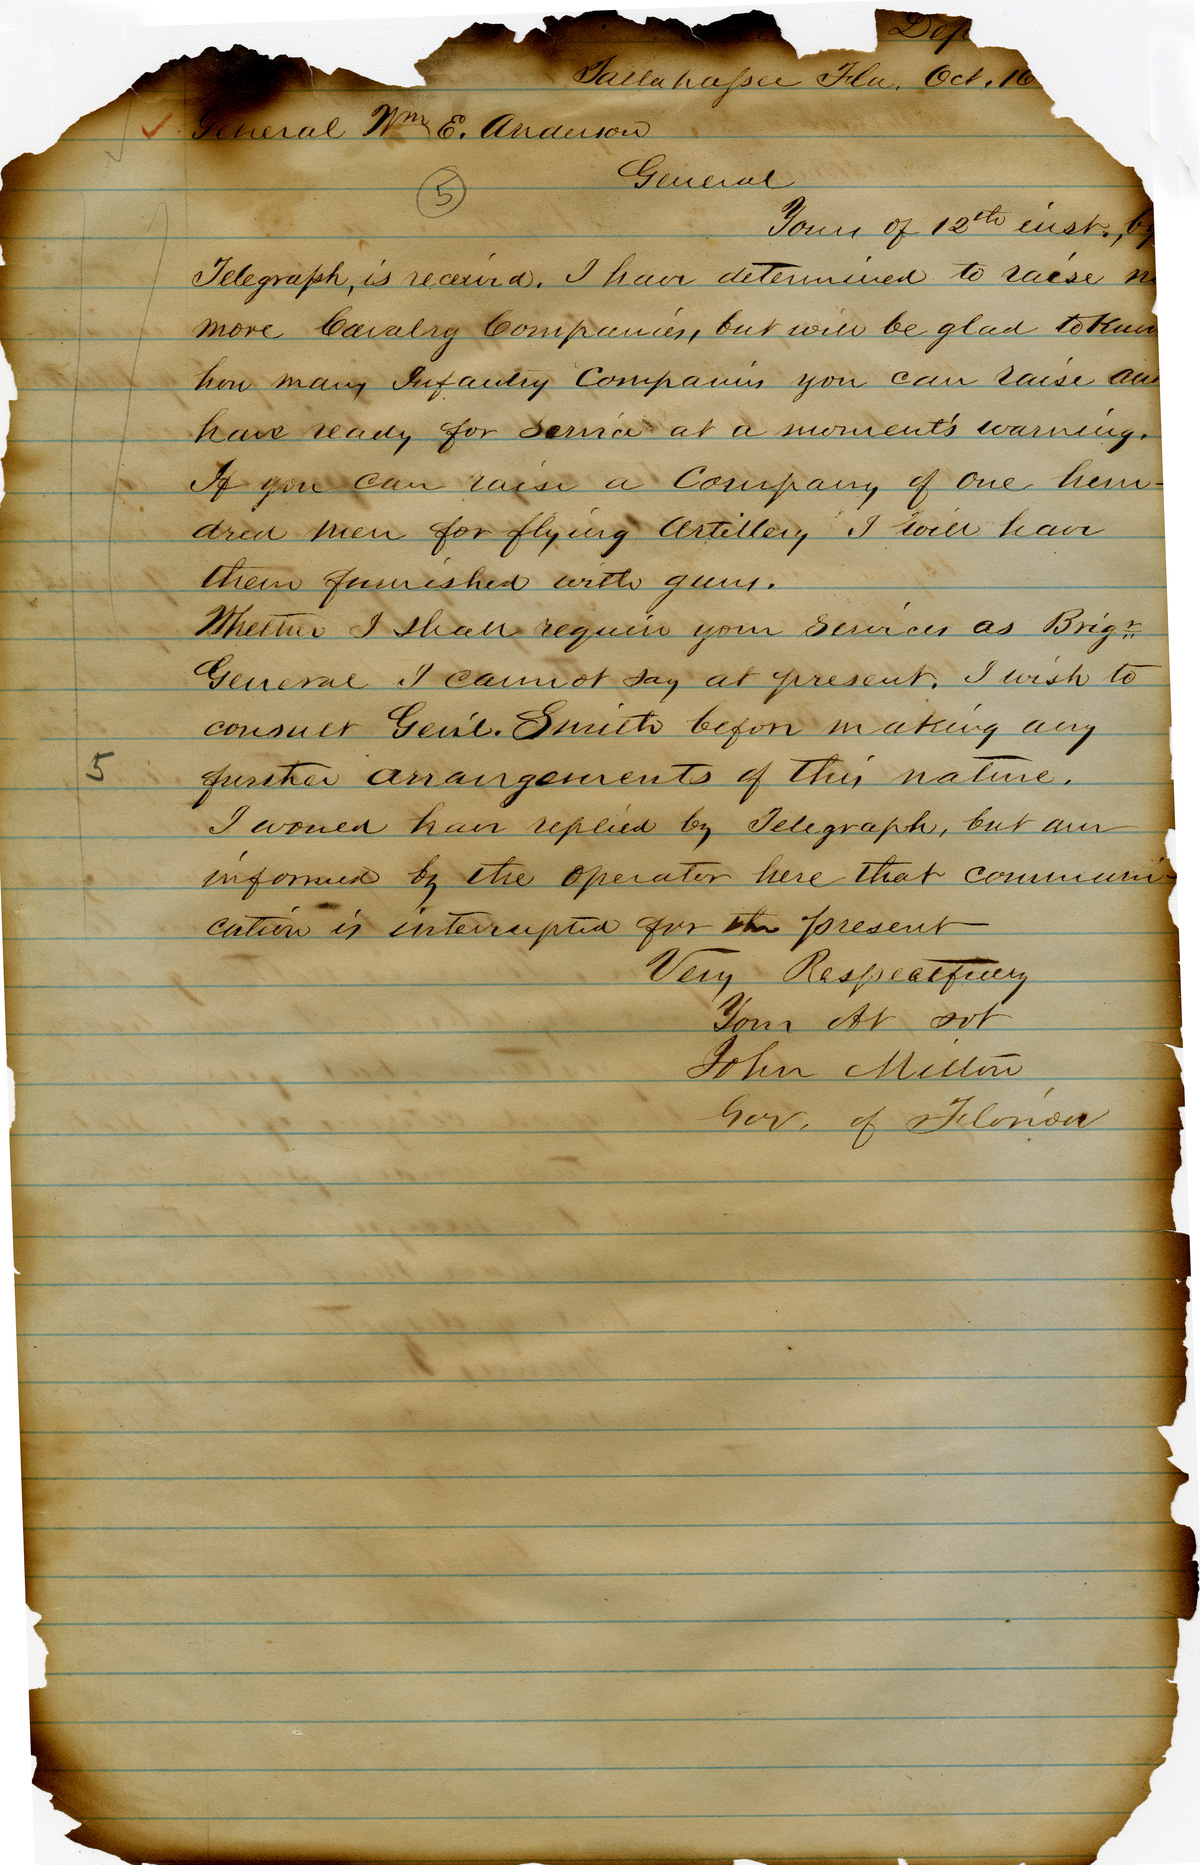 Dep
Tallahassee Fla. Oct. 16
General Wm E. Anderson
5
General
Yours of 12th inst., by
Telegraph, is received. I have determined to raise no
more Cavalry Companies, but will be glad to Know
how many Infantry Companies you can raise and
have ready for service at a moment's warning.
If you can raise a Company of one hun-
dred men for flying Artillery I will have
them furnished with guns.
Whether I shall require your services as Brigr
General I cannot say at present. I wish to
consult Genl. Smith before making any
5
further arrangements of this nature.
I would have replied by Telegraph, but am
informed by the operator here that communi-
cation is interrupted for the present
Very Respectfully
Your Ob svt
John Milton
Gov. of Florida